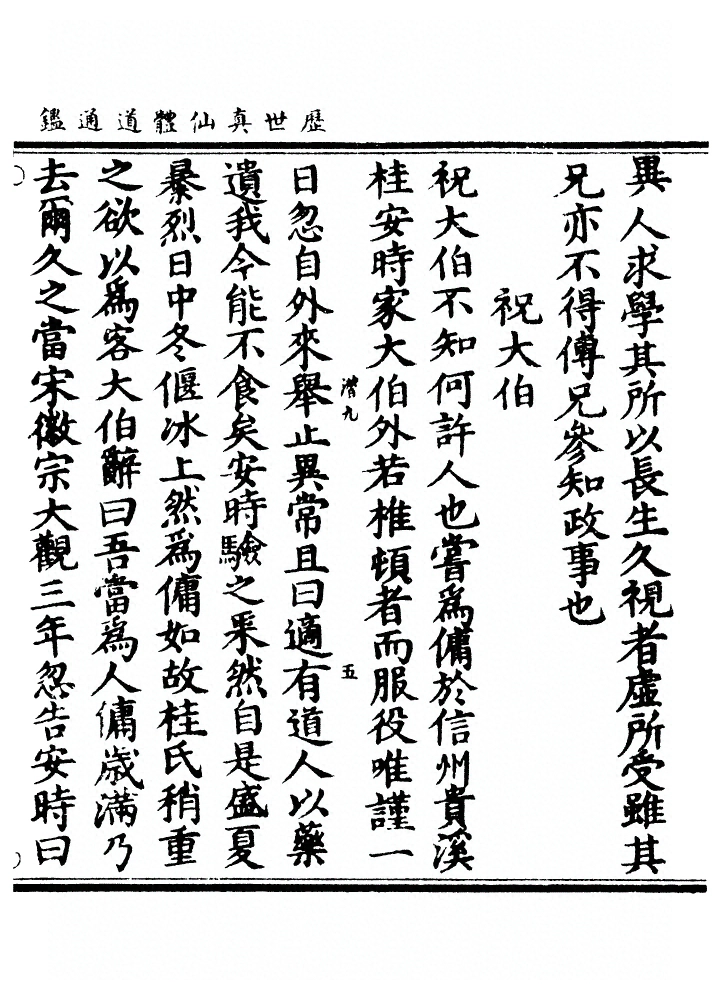 歷世真仙體道通鑑
異人求學其所以長生久視者虛所受雖其
兄亦不得傳兄參知政事也
祝大伯
祝大伯不知何許人也嘗爲傭於信州貴溪
桂安時家大伯外若椎頓者而服役唯謹一
潛九
五
日忽自外來舉止異常且曰適有道人以藥
遺我今能不食矣安時驗之果然自是盛夏
暴烈日中冬偃冰上然爲傭如故桂氏稍重
之欲以爲客大伯辭曰吾當爲人傭歲滿乃
去爾久之當宋徽宗大觀三年忽告安時曰